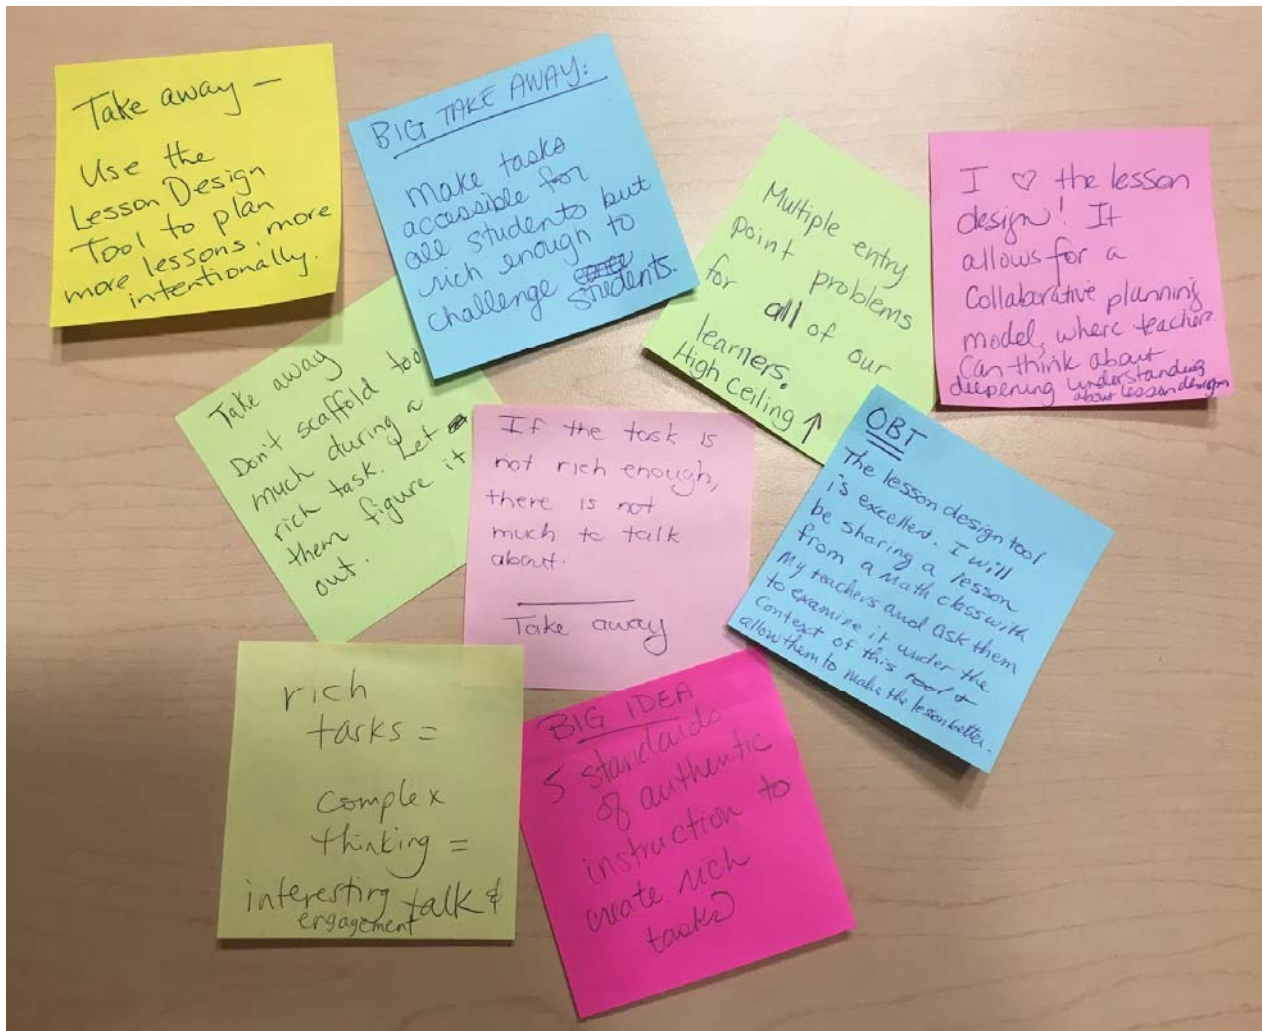 Take away —
Use the
Lesson Design
Tool to plan
more lessons more
intentionally.
BIG TAKE AWAY:
make tasks
accessible for
all students but
rich enough to
challenge
students.
Multiple entry
point problems
for all of our
learners.
High Ceiling ↑
I ♡ the lesson
design! It
allows for a
Collaborative planning
model, where teachers
Can think about
deepening understanding
about lesson design
Take away
Don't scaffold too
much during a
rich task. Let
them figure it
out.
If the task is
not rich enough,
there is not
much to talk
about.
Take away
OBT
The lesson design tool
is excellent. I will
be sharing a lesson
from a Math class with
My teachers and ask them
to examine it under the
Context of this tool &
allow them to make the lesson better.
rich
tasks =
complex
thinking =
interesting talk &
engagement
BIG IDEA
5 standards
of authentic
instruction to
create rich
tasks